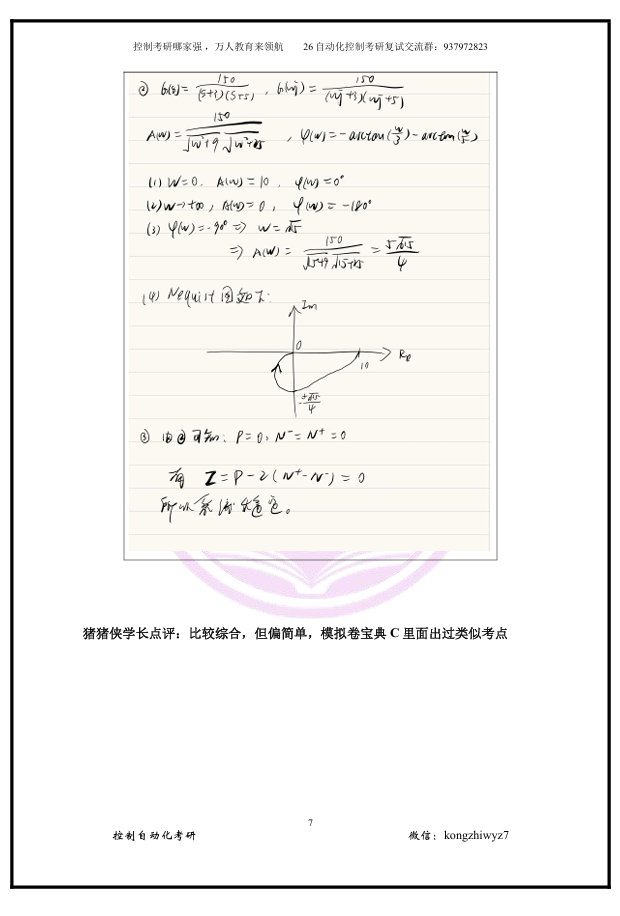 控制考研哪家强，万人教育来领航 26 自动化控制考研复试交流群：937972823
② G(s)= 150/((s+1)(s+5)) , G(wj)= 150/((wj+3)(wj+5))
A(w)= 150/(√(w²+9) √(w²+25)) , φ(w)=-arctan(w/3)-arctan(w/5)
(1) W=0. A(w)=10 , φ(w)=0°
(2) w→+∞, A(w)=0 , φ(w)=-180°
(3) φ(w)=-90° ⇒ w=√15
⇒ A(w)= 150/(√(15+9) √(15+25)) = 5√15/4
(4) Nequist图如下：
Im
0
10
Re
③ 由②可知：P=0, N⁻=N⁺=0
有 Z=P-2(N⁺-N⁻)=0
所以系统稳定。
猪猪侠学长点评：比较综合，但偏简单，模拟卷宝典 C 里面出过类似考点
7
控制自动化考研 微信：kongzhiwyz7